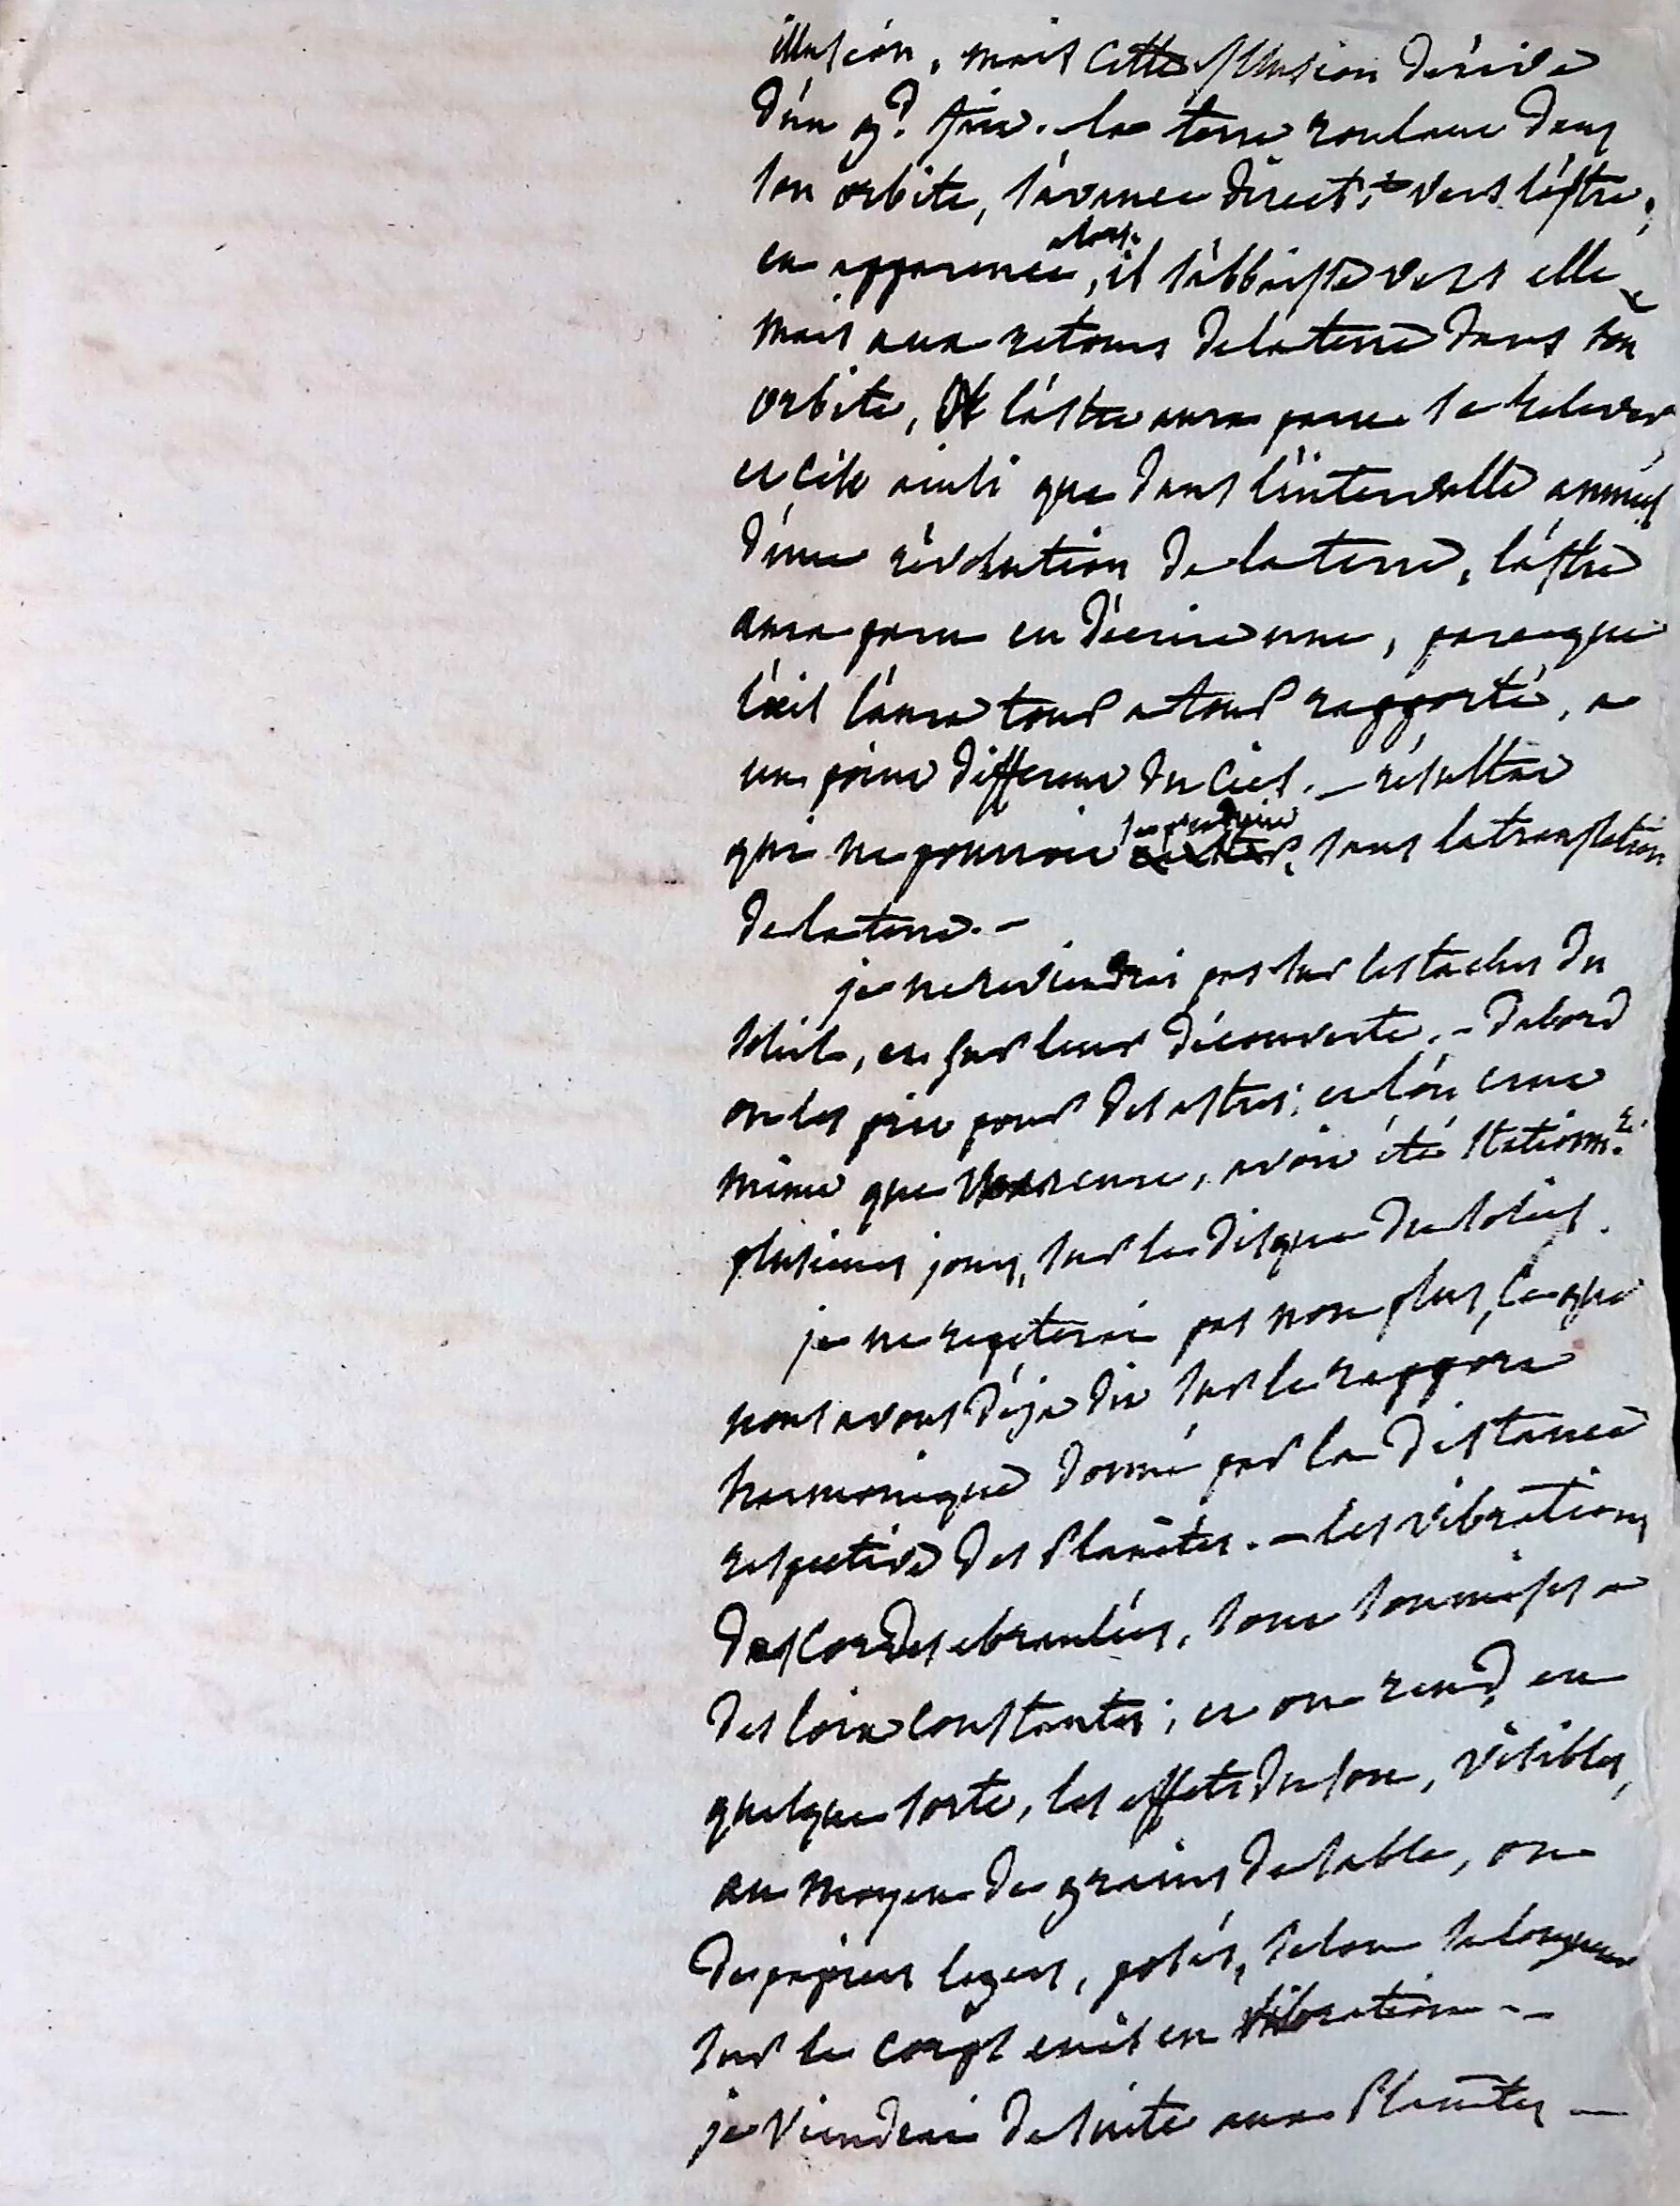 illusion, mais cette illusion dérive
d'un gd. fait. la terre roulant dans
son orbite, s'avance direct.t vers l'astre;
en apparence alors, il s'abbaisse vers elle
mais aux retours de la terre dans son
orbite, l'astre aura paru se relever
et c'est ainsi que dans l'intervalle annuel
d'une révolution de la terre, l'astre
aura paru en décrire une, parceque
l'œil l'aura tour a tour rapporté, a
un point different du Ciel. — résultat
qui ne pourroit se produire, sans la translation
de la terre. —
je ne reviendrai pas sur les taches du
soleil, et sur leur découverte. — Dabord
on les prit pour des astres; et l'on crut
même que Mercure, avoit été stationn.re
plusieurs jours, sur le disque du soleil.
je ne repeterai pas non plus, ce que
nous avons déja dit sur le rapport
harmonique donné par la distance
respective des Planètes. — les vibrations
des cordes ebranlées, sont soumises a
des loix constantes; et on rend, en
quelque sorte, les effets du son, visibles,
au moyen de grains de sable, ou
de papiers legers, posés, selon sa longueur
sur le corps mis en vibration - -
je viendrai de suite aux Planètes —